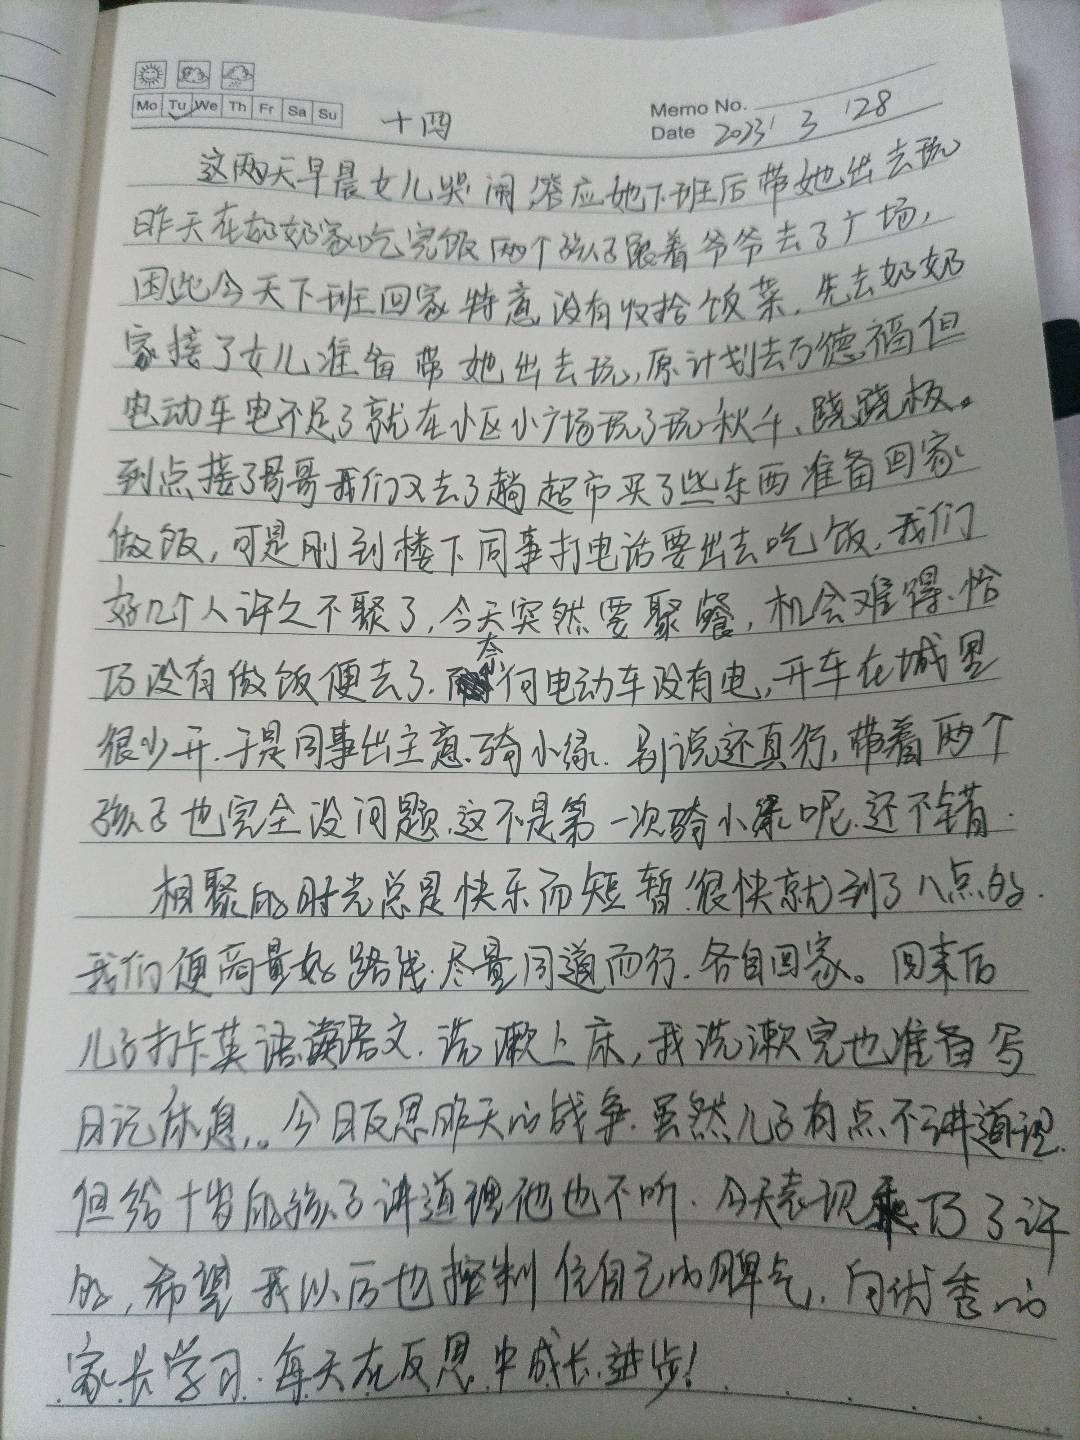 Mo Tu We Th Fr Sa Su
十四
Memo No.
Date 2023' 3 '28
这两天早晨女儿哭闹,答应她下班后带她出去玩
昨天在奶奶家吃完饭两个孩子跟着爷爷去了广场,
因此今天下班回家特意没有收拾饭菜,先去奶奶
家接了女儿准备带她出去玩,原计划去万德福但
电动车电不足了就在小区小广场玩了玩秋千、跷跷板。
到点接了哥哥我们又去了趟超市买了些东西准备回家
做饭,可是刚到楼下同事打电话要出去吃饭,我们
好几个人许久不聚了,今天突然要聚餐,机会难得、恰
巧没有做饭便去了.奈何电动车没有电,开车在城里
很少开.于是同事出主意.骑小绿.别说还真行,带着两个
孩子也完全没问题.这不是第一次骑小绿呢.还不错.
相聚的时光总是快乐而短暂.很快就到了八点的.
我们便商量好路线.尽量同道而行.各自回家。回来后
儿子打卡英语读语文.洗漱上床,我洗漱完也准备写
日记休息,。今日反思昨天的战争.虽然儿子有点不讲道理.
但给十岁的孩子讲道理他也不听.今天表现乖巧了许
的,希望我以后也控制住自己的脾气.向优秀的
家长学习.每天在反思中成长.进步!